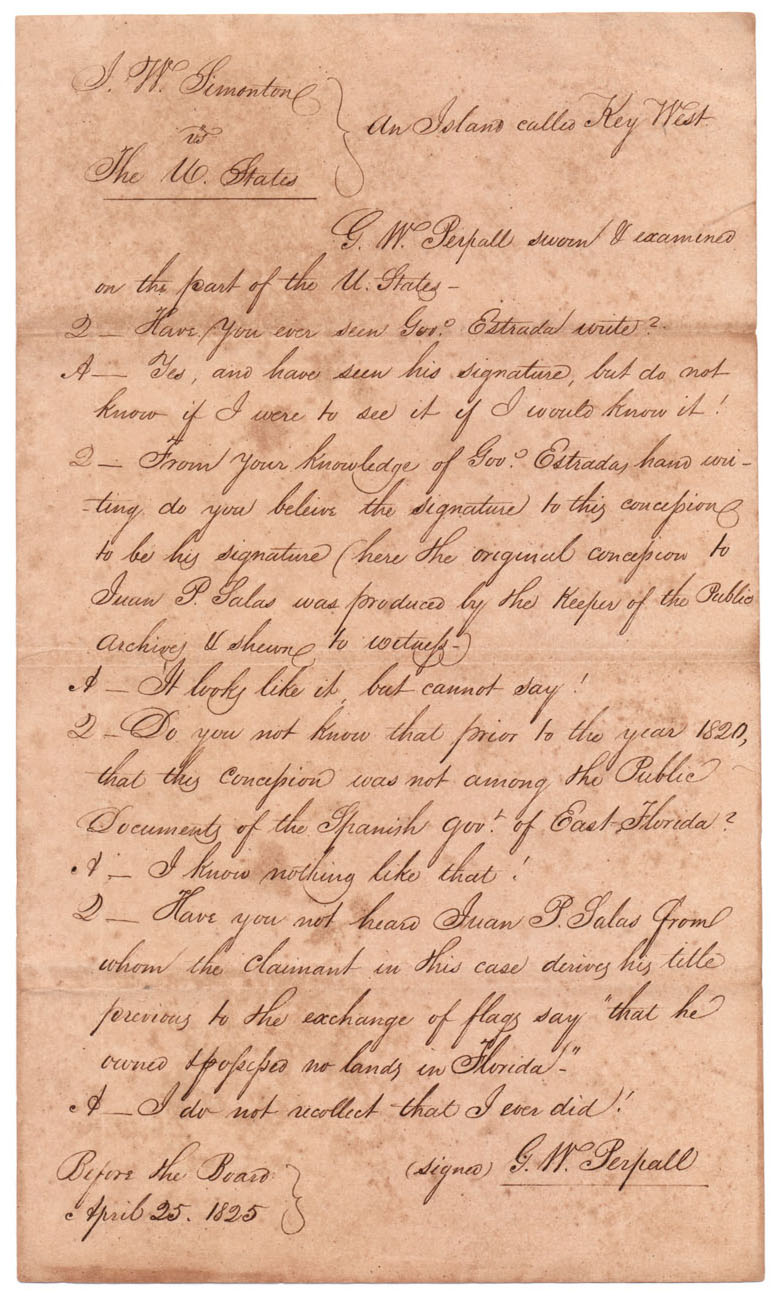 J. W. Simonton
vs
The U. States
An Island called Key West.
G. W. Perpall sworn & examined
on the part of the U. States -
Q - Have you ever seen Gov.º Estrada write?
A - Yes, and have seen his signature, but do not
know if I were to see it if I would know it!
Q - From your knowledge of Gov.º Estradas hand wri-
-ting do you beleive the signature to this concession
to be his signature (here the original concession to
Juan P. Salas was produced by the Keeper of the Public
Archives & shewn to witness-)
A - It looks like it, but cannot say!
Q - Do you not know that prior to the year 1820,
that this concession was not among the Public
Documents of the Spanish Gov.t of East-Florida?
A - I know nothing like that!
Q - Have you not heard Juan P. Salas from
whom the Claimant in this case derives his title
previous to the exchange of flags say "that he
owned & possessed no lands in Florida!"
A - I do not recollect that I ever did!
(signed) G. W. Perpall
Before the Board
April 25. 1825